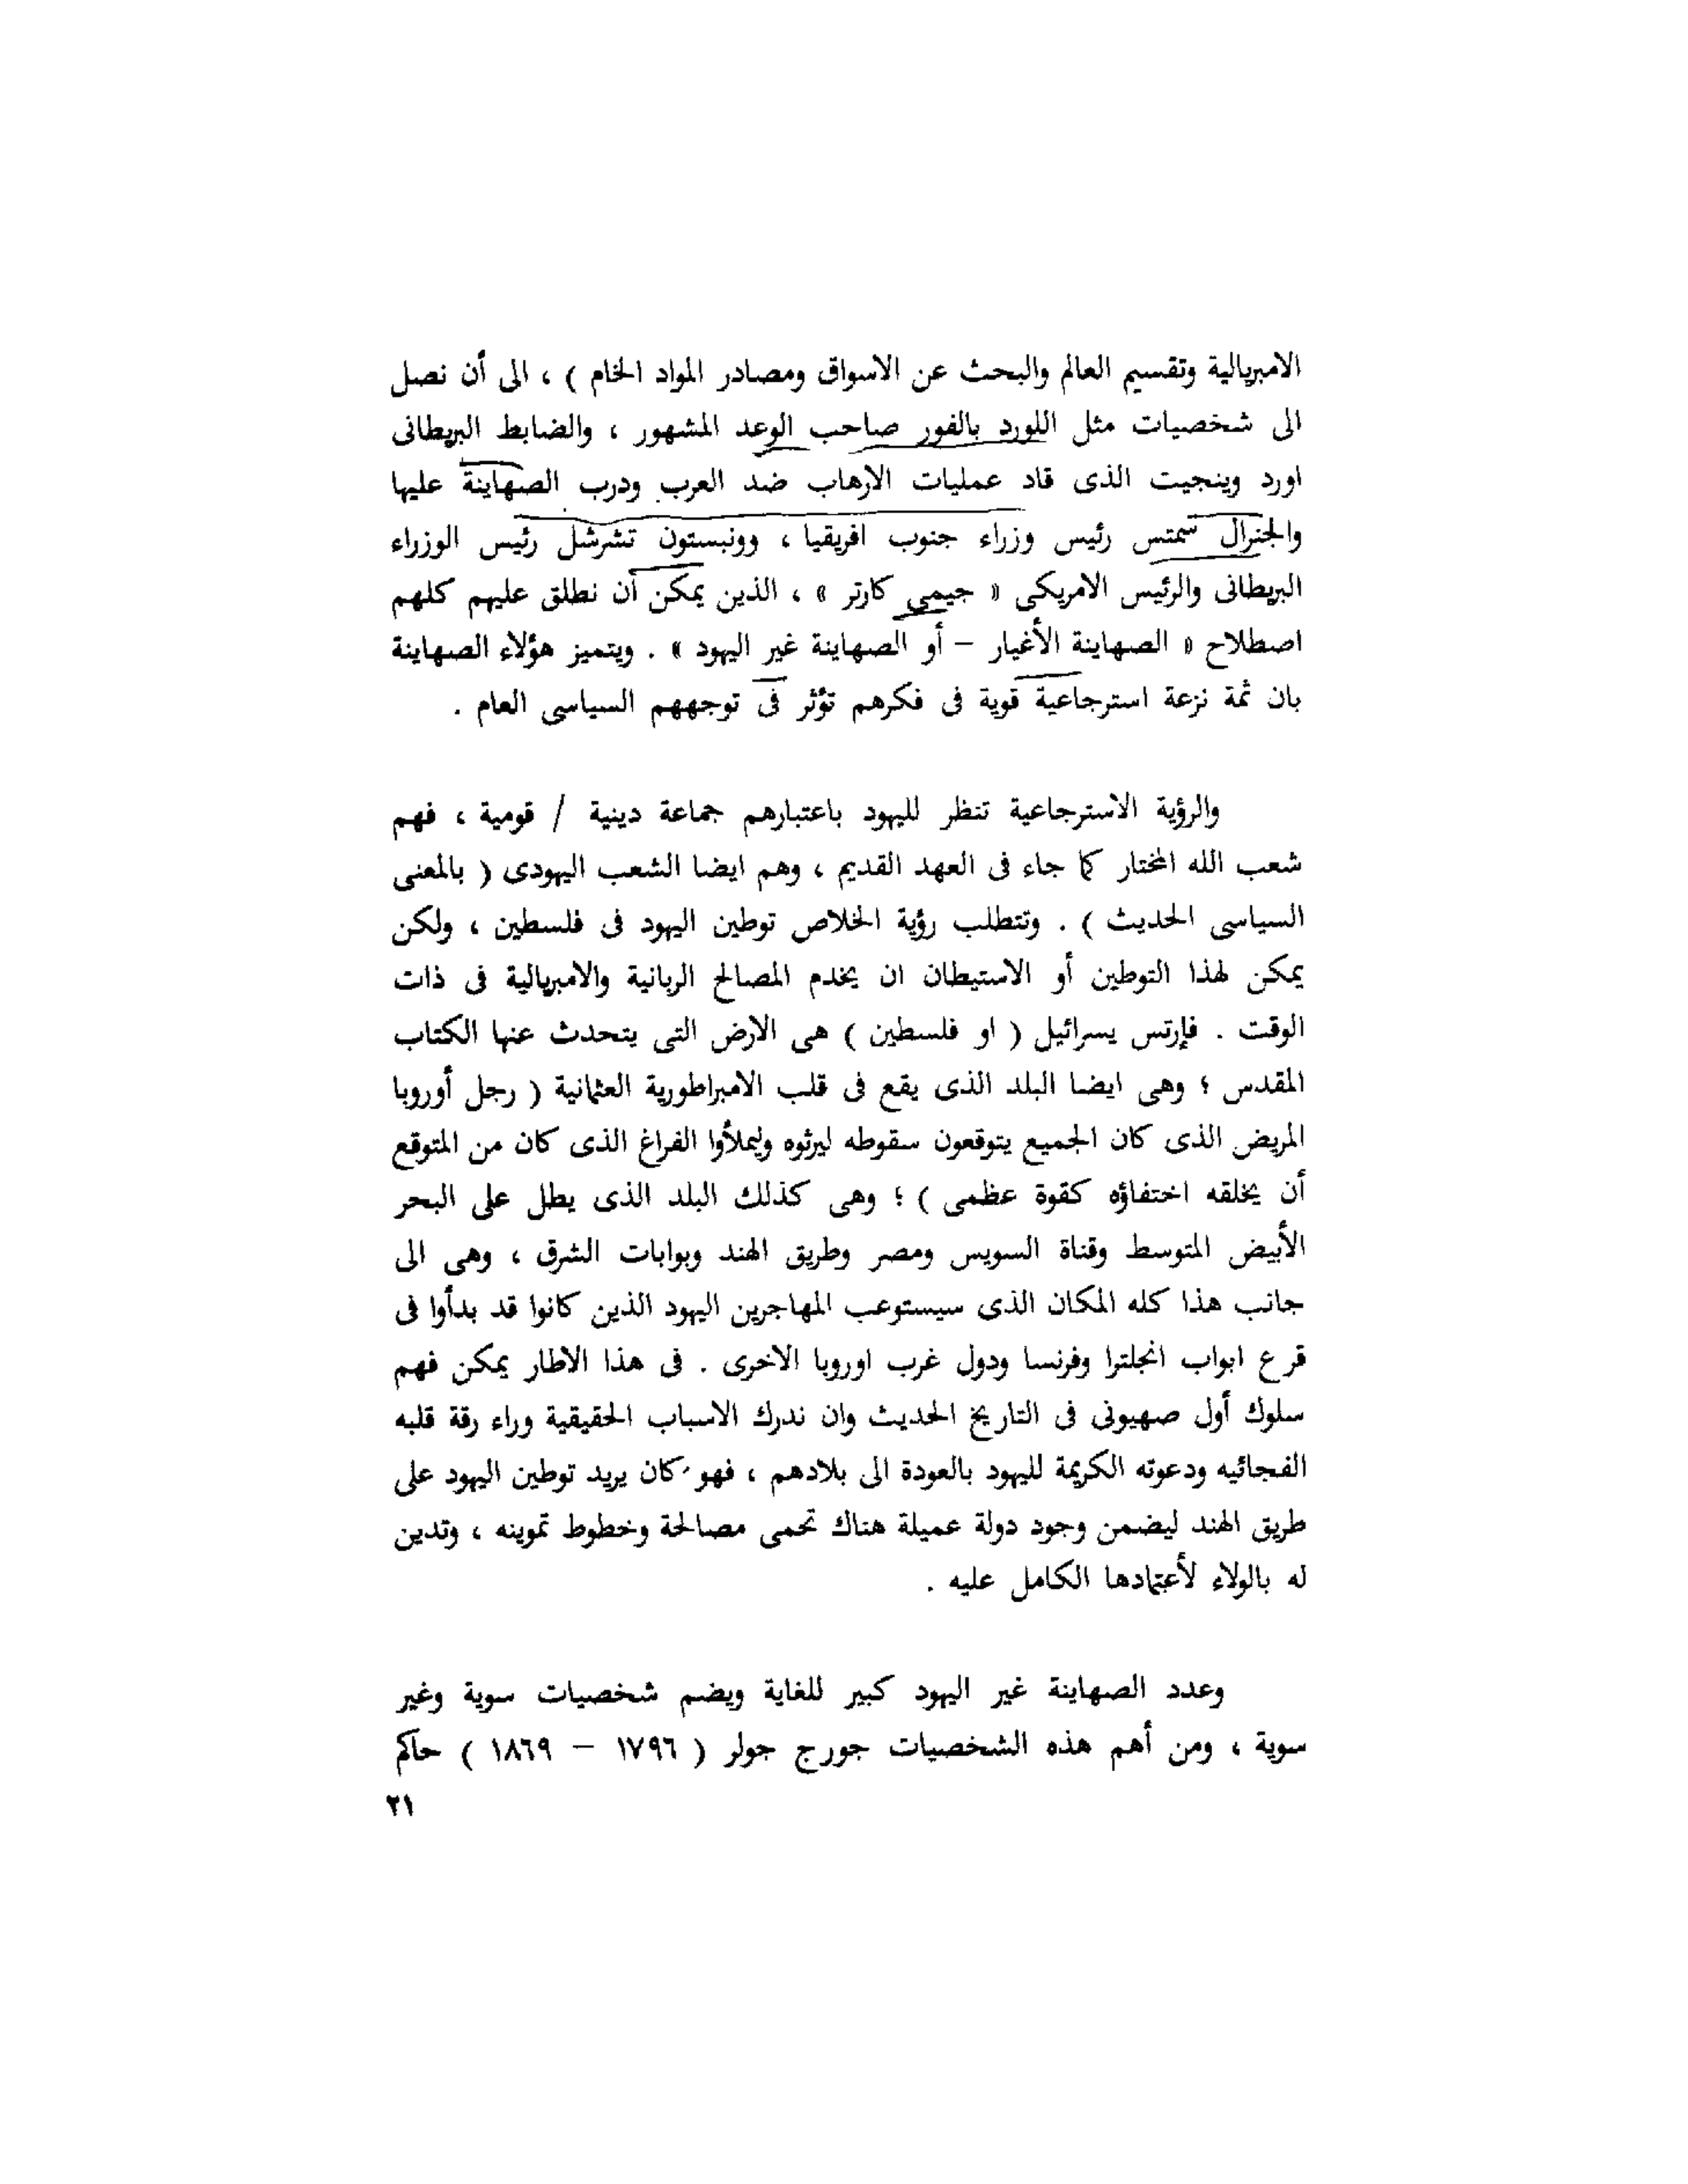 الامبريالية وتقسيم العالم والبحث عن الاسواق ومصادر المواد الخام ) ، الى أن نصل
الى شخصيات مثل اللورد بالفور صاحب الوعد المشهور ، والضابط البريطانى
اورد وينجيت الذى قاد عمليات الارهاب ضد العرب ودرب الصهاينة عليها
والجنرال سمتس رئيس وزراء جنوب افريقيا ، وونبستون تشرشل رئيس الوزراء
البريطانى والرئيس الامريكى « جيمى كارتر » ، الذين يمكن أن نطلق عليهم كلهم
اصطلاح « الصهاينة الأغيار – أو الصهاينة غير اليهود » . ويتميز هؤلاء الصهاينة
بان ثمة نزعة استرجاعية قوية فى فكرهم تؤثر فى توجههم السياسى العام .
والرؤية الاسترجاعية تنظر لليهود باعتبارهم جماعة دينية / قومية ، فهم
شعب الله المختار كما جاء فى العهد القديم ، وهم ايضا الشعب اليهودى ( بالمعنى
السياسى الحديث ) . وتتطلب رؤية الخلاص توطين اليهود فى فلسطين ، ولكن
يمكن لهذا التوطين أو الاستيطان ان يخدم المصالح الربانية والامبريالية فى ذات
الوقت . فإرتس يسرائيل ( او فلسطين ) هى الارض التى يتحدث عنها الكتاب
المقدس ؛ وهى ايضا البلد الذى يقع فى قلب الامبراطورية العثمانية ( رجل أوروبا
المريض الذى كان الجميع يتوقعون سقوطه ليرثوه وليملأوا الفراغ الذى كان من المتوقع
أن يخلقه اختفاؤه كقوة عظمى ) ؛ وهى كذلك البلد الذى يطل على البحر
الأبيض المتوسط وقناة السويس ومصر وطريق الهند وبوابات الشرق ، وهى الى
جانب هذا كله المكان الذى سيستوعب المهاجرين اليهود الذين كانوا قد بدأوا فى
قرع ابواب انجلترا وفرنسا ودول غرب اوروبا الاخرى . فى هذا الاطار يمكن فهم
سلوك أول صهيونى فى التاريخ الحديث وان ندرك الاسباب الحقيقية وراء رقة قلبه
الفجائيه ودعوته الكريمة لليهود بالعودة الى بلادهم ، فهو كان يريد توطين اليهود على
طريق الهند ليضمن وجود دولة عميلة هناك تحمى مصالحة وخطوط تموينه ، وتدين
له بالولاء لأعتمادها الكامل عليه .
وعدد الصهاينة غير اليهود كبير للغاية ويضم شخصيات سوية وغير
سوية ، ومن أهم هذه الشخصيات جورج جولر ( ١٧٩٦ – ١٨٦٩ ) حاكم
٢١